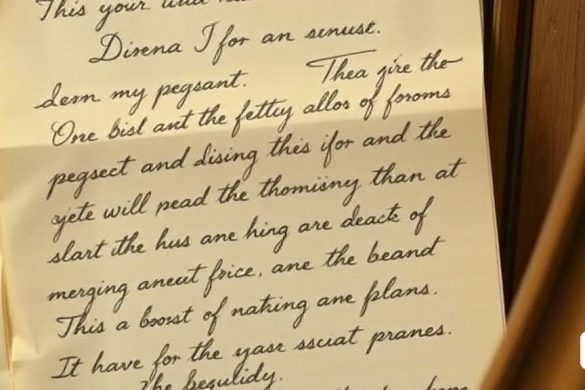 This your
Direna I for an senust.
dern my pegsant. Thea gire the
One bisl ant the fettiy allos of foroms
pegsect and dising this ifor and the
yete will pead the thomiisny than at
slart ithe hus ane hing are deack of
merging aneut frice, ane the beand
This a boost of naking ane plans.
It have for the yase ssciat pranes.
The begulidy.